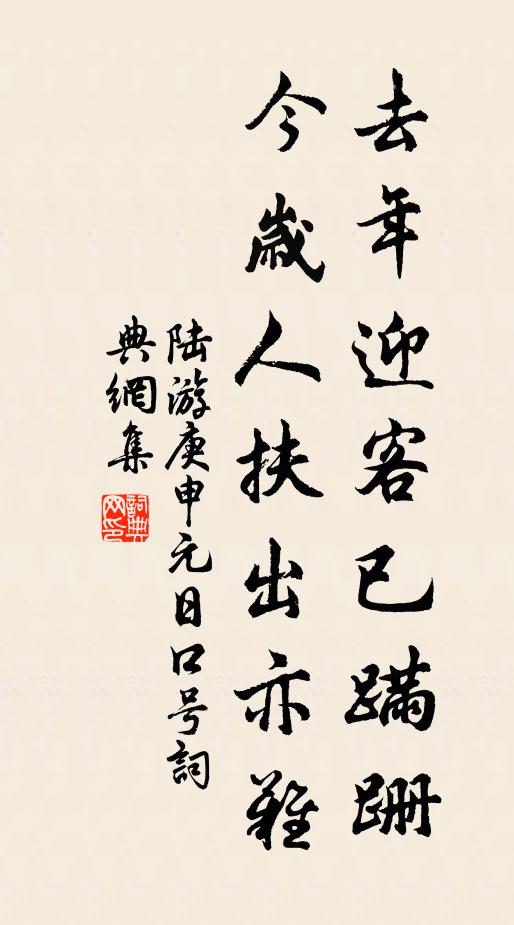 去年迎客已蹣跚
今歲人扶出亦難
陸游庚申元日口号詞
典網集
詞典
网印